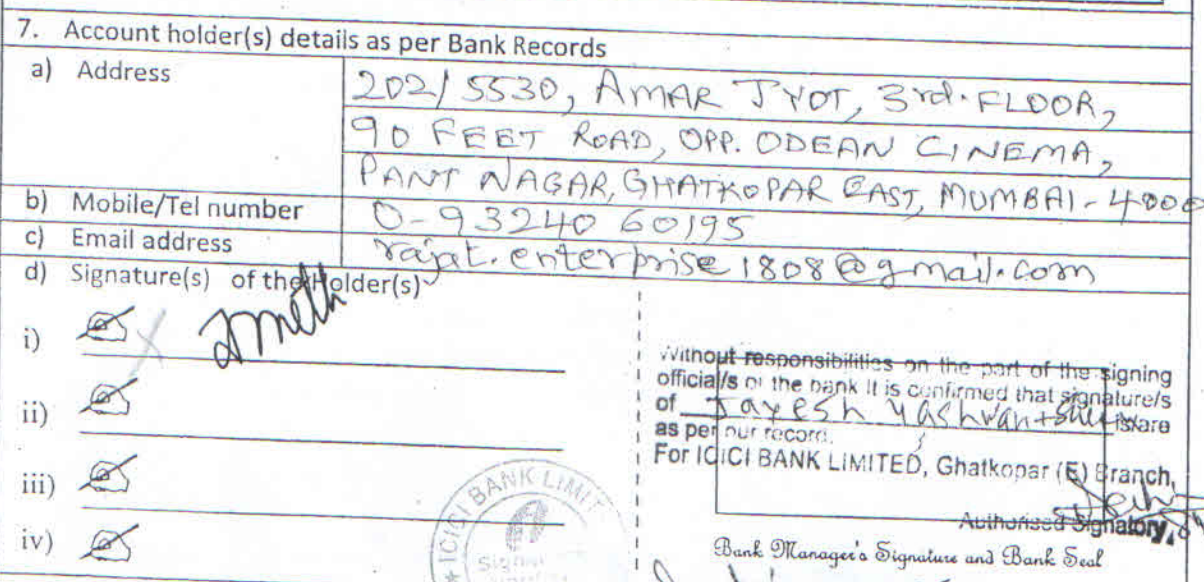 7. Account holder(s) details as per Bank Records
a) Address
202/5530, AMAR JYOT, 3rd. FLOOR,
90 FEET ROAD, OPP. ODEAN CINEMA,
PANT NAGAR, GHATKOPAR EAST, MUMBAI - 4000
b) Mobile/Tel number 0-93240 60195
c) Email address rajat.enterprise1808@gmail.com
d) Signature(s) of the Holder(s)
i)
ii)
iii)
iv)
Without responsibilities on the part of the signing
official/s or the bank it is confirmed that signature/s
of Jayesh Yashwant is/are
as per our record.
For ICICI BANK LIMITED, Ghatkopar (E) Branch,
Authorised Signatory
Bank Manager's Signature and Bank Seal
ICICI BANK LIMIT